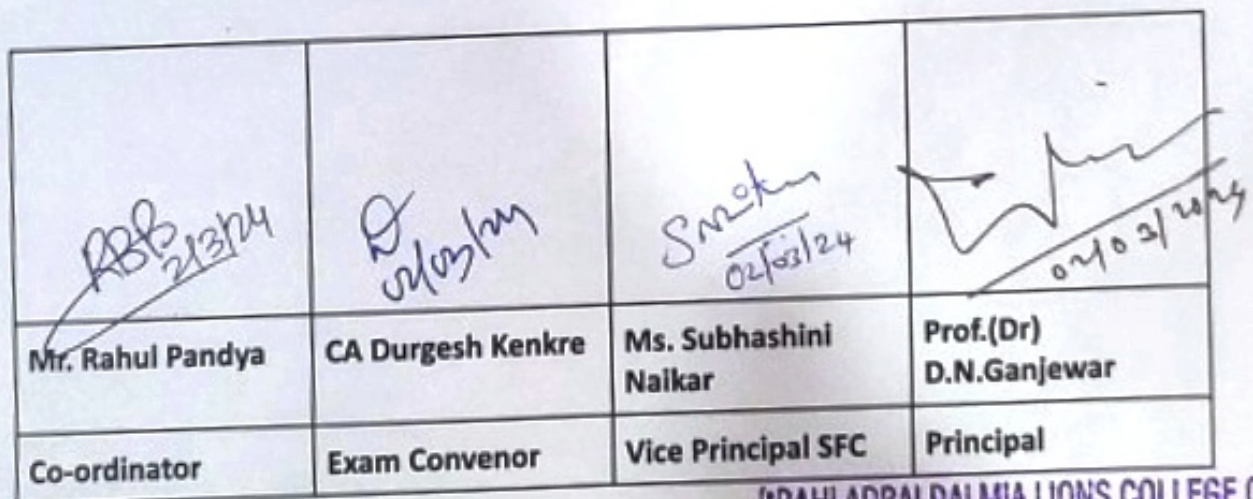 RBP
2/3/24
02/03/24
02/03/24
02/03/2024
Mr. Rahul Pandya
CA Durgesh Kenkre
Ms. Subhashini
Naikar
Prof.(Dr)
D.N.Ganjewar
Co-ordinator
Exam Convenor
Vice Principal SFC
Principal
DALMIA LIONS COLLEGE